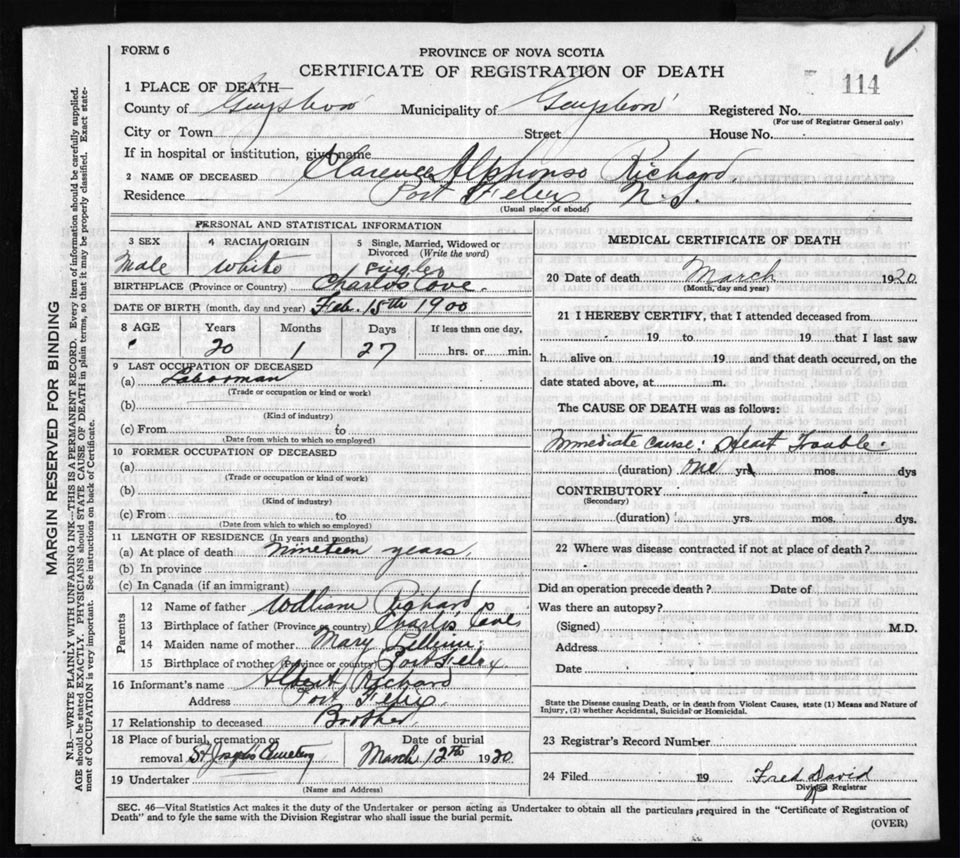 FORM 6
PROVINCE OF NOVA SCOTIA
CERTIFICATE OF REGISTRATION OF DEATH
114
1 PLACE OF DEATH—
County of Guysboro Municipality of Guysboro Registered No.
(For use of Registrar General only)
City or Town Street House No.
If in hospital or institution, give name
2 NAME OF DECEASED Clarence Alphonso Richard
Residence Port Felix, N.S.
(Usual place of abode)
PERSONAL AND STATISTICAL INFORMATION
3 SEX 4 RACIAL ORIGIN 5 Single, Married, Widowed or Divorced (Write the word)
Male White Single
BIRTHPLACE (Province or Country) Charlos Cove.
DATE OF BIRTH (month, day and year) Feb. 15th 1900
8 AGE Years Months Days If less than one day,
20 1 27 hrs. or min.
9 LAST OCCUPATION OF DECEASED
(a) Laborman
(Trade or occupation or kind or work)
(b)
(Kind of industry)
(c) From to
(Date from which to which so employed)
10 FORMER OCCUPATION OF DECEASED
(a)
(Trade or occupation or kind of work)
(b)
(Kind of industry)
(c) From to
(Date from which to which so employed)
11 LENGTH OF RESIDENCE (In years and months)
(a) At place of death nineteen years.
(b) In province
(c) In Canada (if an immigrant)
Parents
12 Name of father William Richard
13 Birthplace of father (Province or country) Charlos Cove
14 Maiden name of mother Mary
15 Birthplace of mother (Province or country) Port Felix.
16 Informant's name Albert Richard
Address Port Felix.
17 Relationship to deceased Brother
18 Place of burial, cremation or Date of burial
removal St Joseph's Cemetery March 12th 1920
19 Undertaker
(Name and Address)
MEDICAL CERTIFICATE OF DEATH
20 Date of death March 1920
(Month, day and year)
21 I HEREBY CERTIFY, that I attended deceased from
19 to 19 that I last saw
h alive on 19 and that death occurred, on the
date stated above, at m.
The CAUSE OF DEATH was as follows:
Immediate cause: Heart Trouble.
(duration) one yrs mos. dys
CONTRIBUTORY
(Secondary)
(duration) yrs. mos. dys.
22 Where was disease contracted if not at place of death?
Did an operation precede death? Date of
Was there an autopsy?
(Signed) M.D.
Address
Date
State the Disease causing Death, or in death from Violent Causes, state (1) Means and Nature of
Injury, (2) whether Accidental, Suicidal or Homicidal.
23 Registrar's Record Number
24 Filed 19 Fred David
Division Registrar
SEC. 46—Vital Statistics Act makes it the duty of the Undertaker or person acting as Undertaker to obtain all the particulars required in the "Certificate of Registration of
Death" and to fyle the same with the Division Registrar who shall issue the burial permit.
(OVER)
MARGIN RESERVED FOR BINDING
N.B.—WRITE PLAINLY WITH UNFADING INK—THIS IS A PERMANENT RECORD. Every item of information should be carefully supplied.
AGE should be stated EXACTLY. PHYSICIANS should STATE CAUSE OF DEATH in plain terms, so that it may be properly classified. Exact state-
ment of OCCUPATION is very important. See instructions on back of Certificate.